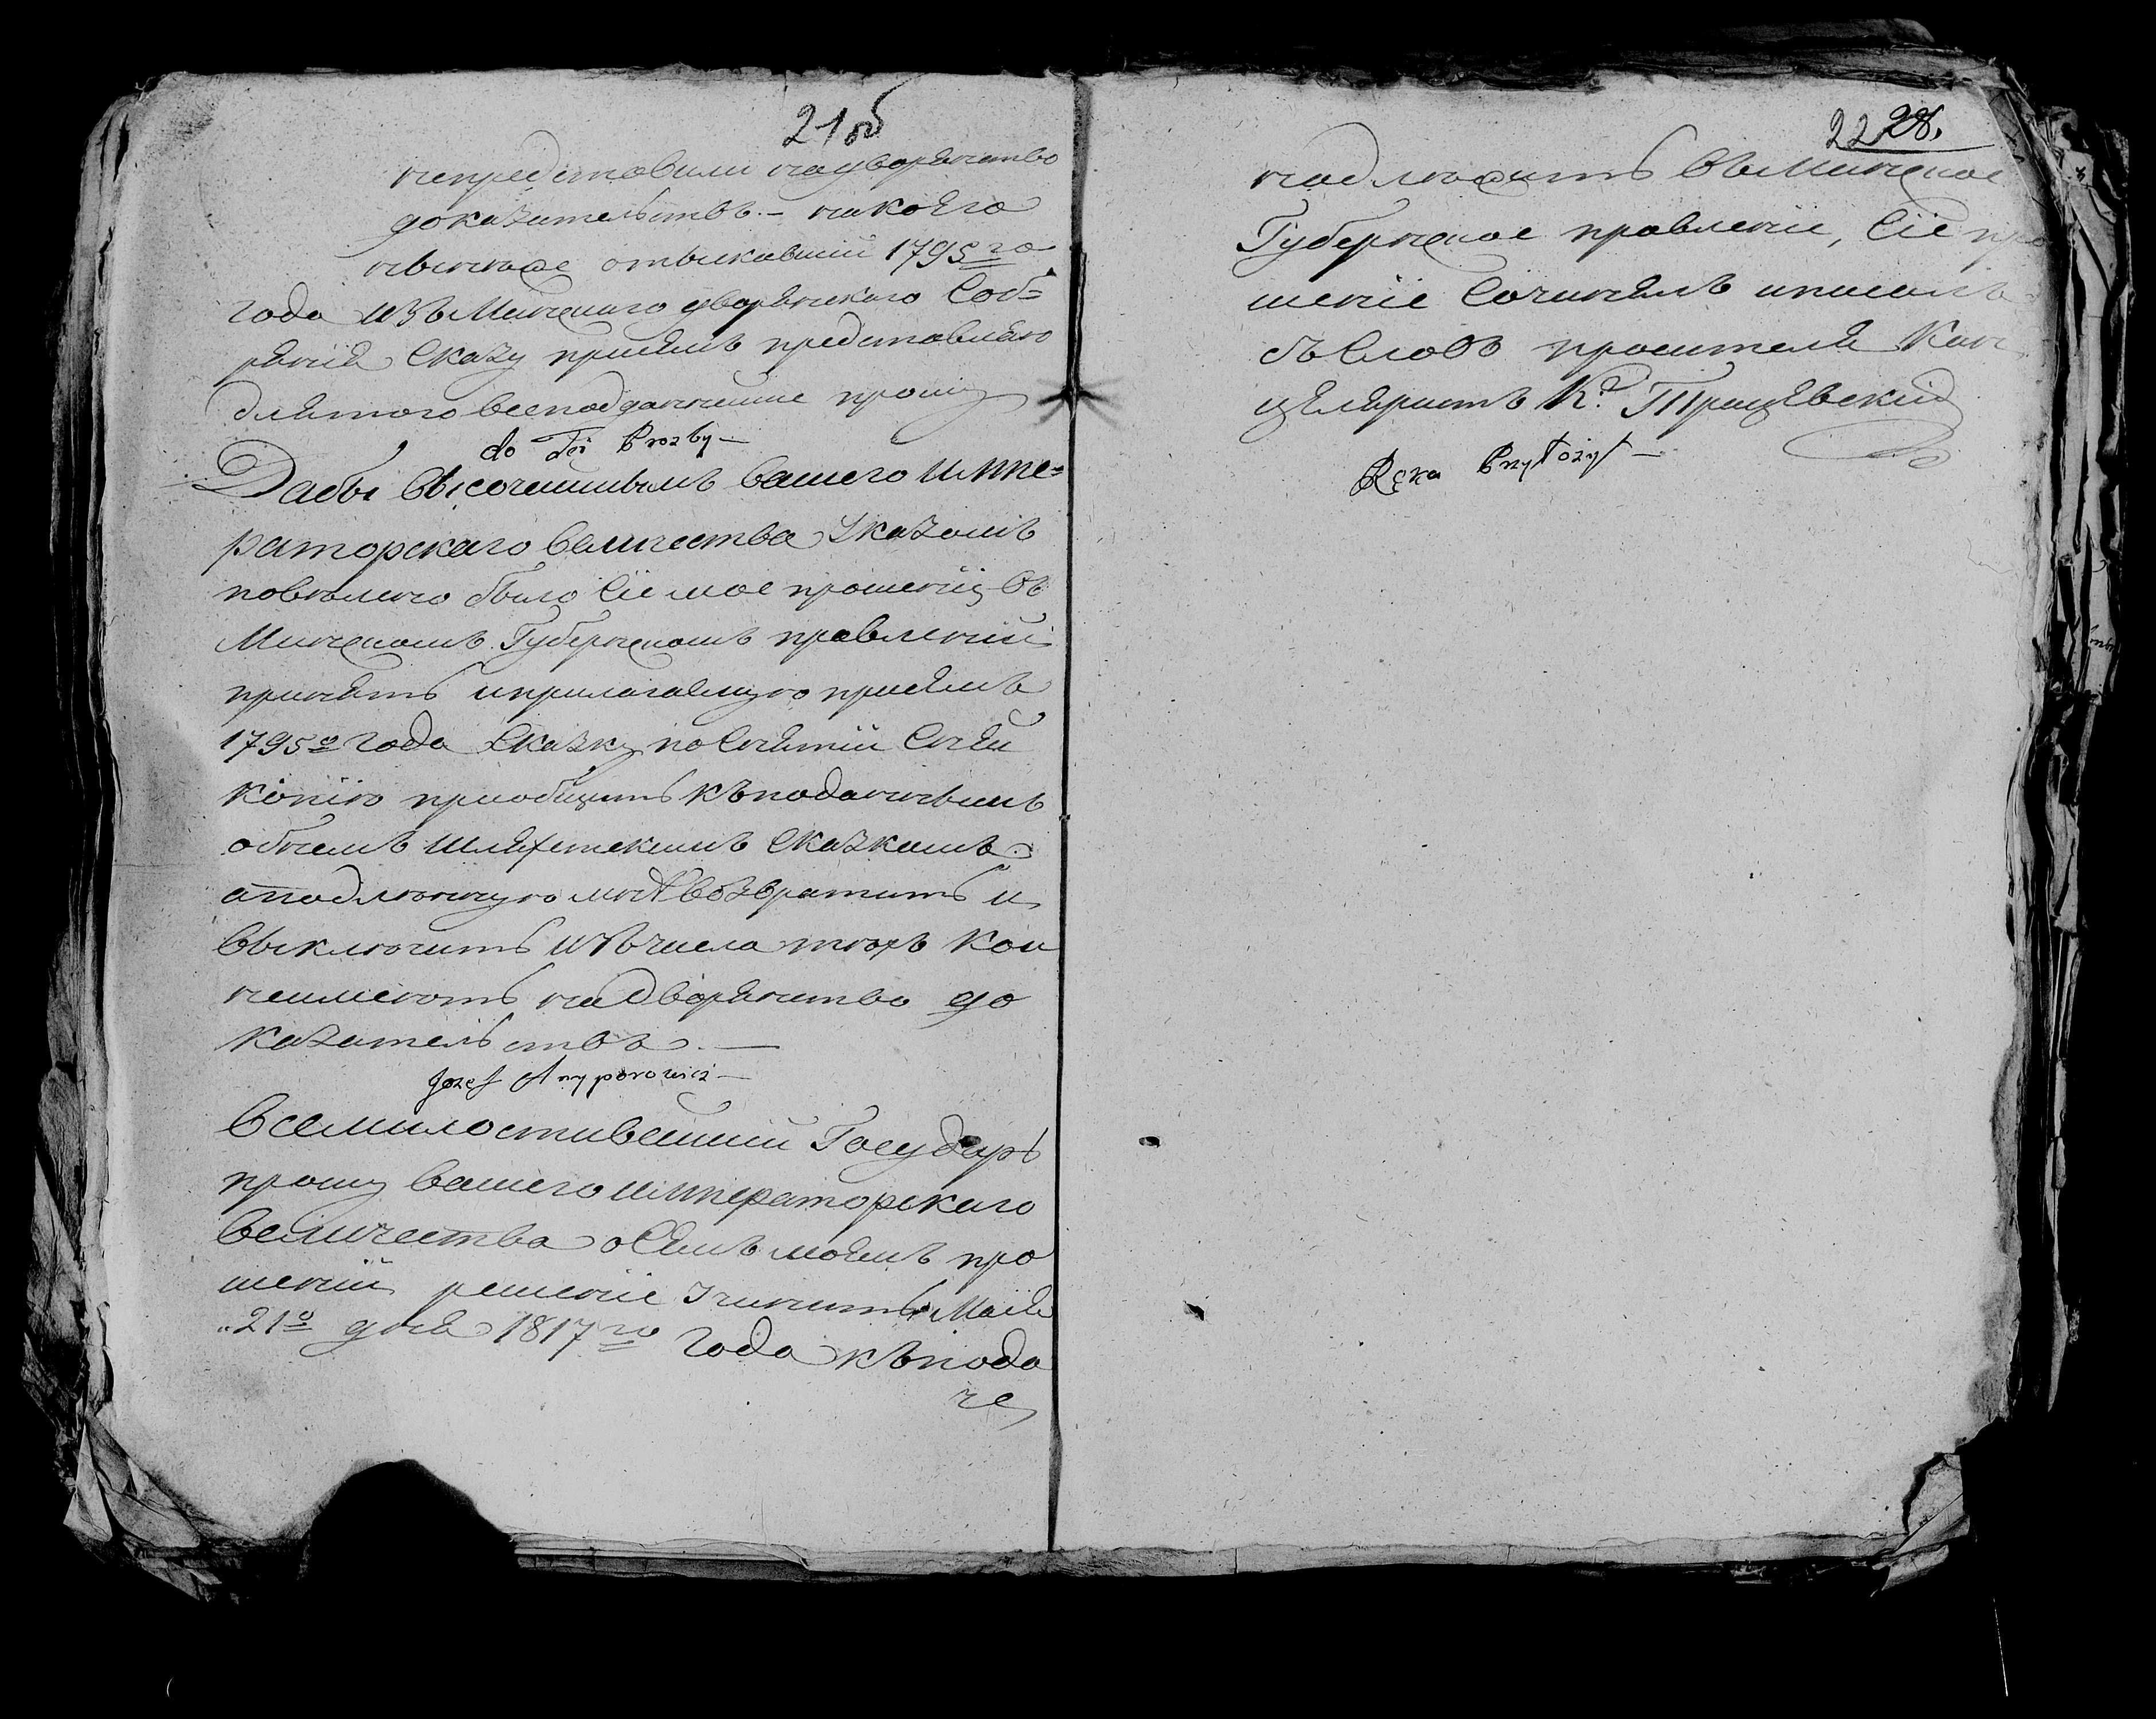 21об
непредставили надворянство
доказательствъ. – накоего
ныннѣ отыскавший 1795го
года изъ Минскаго дворянскаго Соб=
рания Сказу приемъ представляю
длятого всеподданнейше прошу
do Tei Prozby —
Дабы высочайшимъ вашего Импе=
раторскаго величества Указомъ
повелено было Сие мое прошение въ
Минскомъ Губернскомъ правлении
принять иприлагаемую приемъ
1795го года Сказку поСнятии Снеи
копию приобщить кподаннымъ
обнемъ Шляхетскимъ Сказкамъ
аподлинную мне возвратить и
выключить изъчисла техъ кои
неимеютъ надворянство до
казательствъ. —
Jozef Anyporowicz —
Всемилостивейший Государь
прошу вашего Императорскаго
величества оСемъ моемъ про
шении решение Учинить Маия
„21го дня 1817го года кпода
че
22 28.
надлежитъ въМинское
Губернское правление, Сие про
шение Сочинялъ иписалъ
съСловъ просителя Кан
целяристъ К. Трацевский
Ręka Przyłożył —